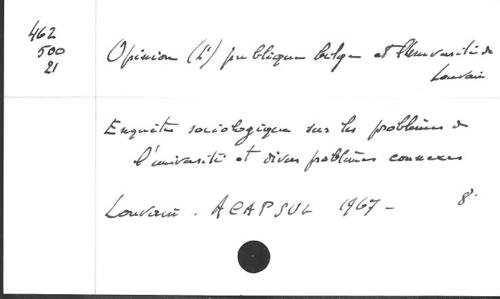 462
500
21
Opinion (L') publique belge et l'Université de
Louvain
Enquête sociologique sur les problèmes de
l'université et divers problèmes connexes
Louvain. ACAPSUL 1967 - 8°